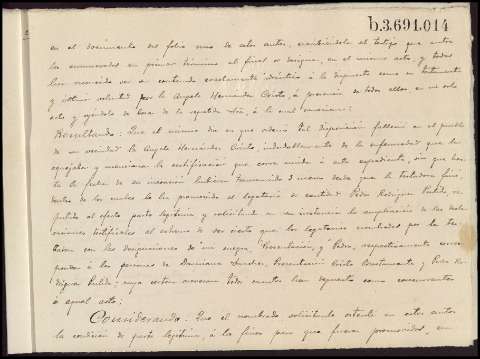 b.3.691.014
en el documento del folio uno de estos autos, manifestándole el testigo que entre
los enumerados en primer término al final se designa, en el mismo acto, y todos
han convenido ser su contenido exactamente idéntico á lo dispuesto como su testamento
y última voluntad por la Angela Hernández Criado, á presencia de todos ellos en un solo
acto y oyéndolo de boca de la repetida Sra, á la cual conocían:
Resultando: Que el mismo día en que ordenó tal disposición falleció en el pueblo
de su vecindad la Angela Hernández Criado, indudablemente de la enfermedad que la
aquejaba y menciona la certificación que corre unida á este expediente, sin que has-
ta la fecha de su incoación hubieran transcurrido 3 meses desde que la testadora
dentro de los cuales lo ha promovido el legatario de cantidad Pedro Rodríguez Pulido, re-
putado al efecto parte legítima y solicitando en su instancia la ampliación de las decla-
raciones testificales al extremo de ser cierto que los legatarios nombrados por la tes-
tadora con las designaciones de "mi suegra, Presentación, y Pedro, respectivamente corres-
ponden á las personas de Damiana Sánchez, Presentación Criado Bustamante y Pedro Ro-
dríguez Pulido; cuya certeza aseveran todos cuantos han depuesto como concurrentes
á aquel acto;
Considerando: Que el nombrado solicitante ostenta en estos autos
la condición de parte legítima, á los fines para que fueron promovidos, en